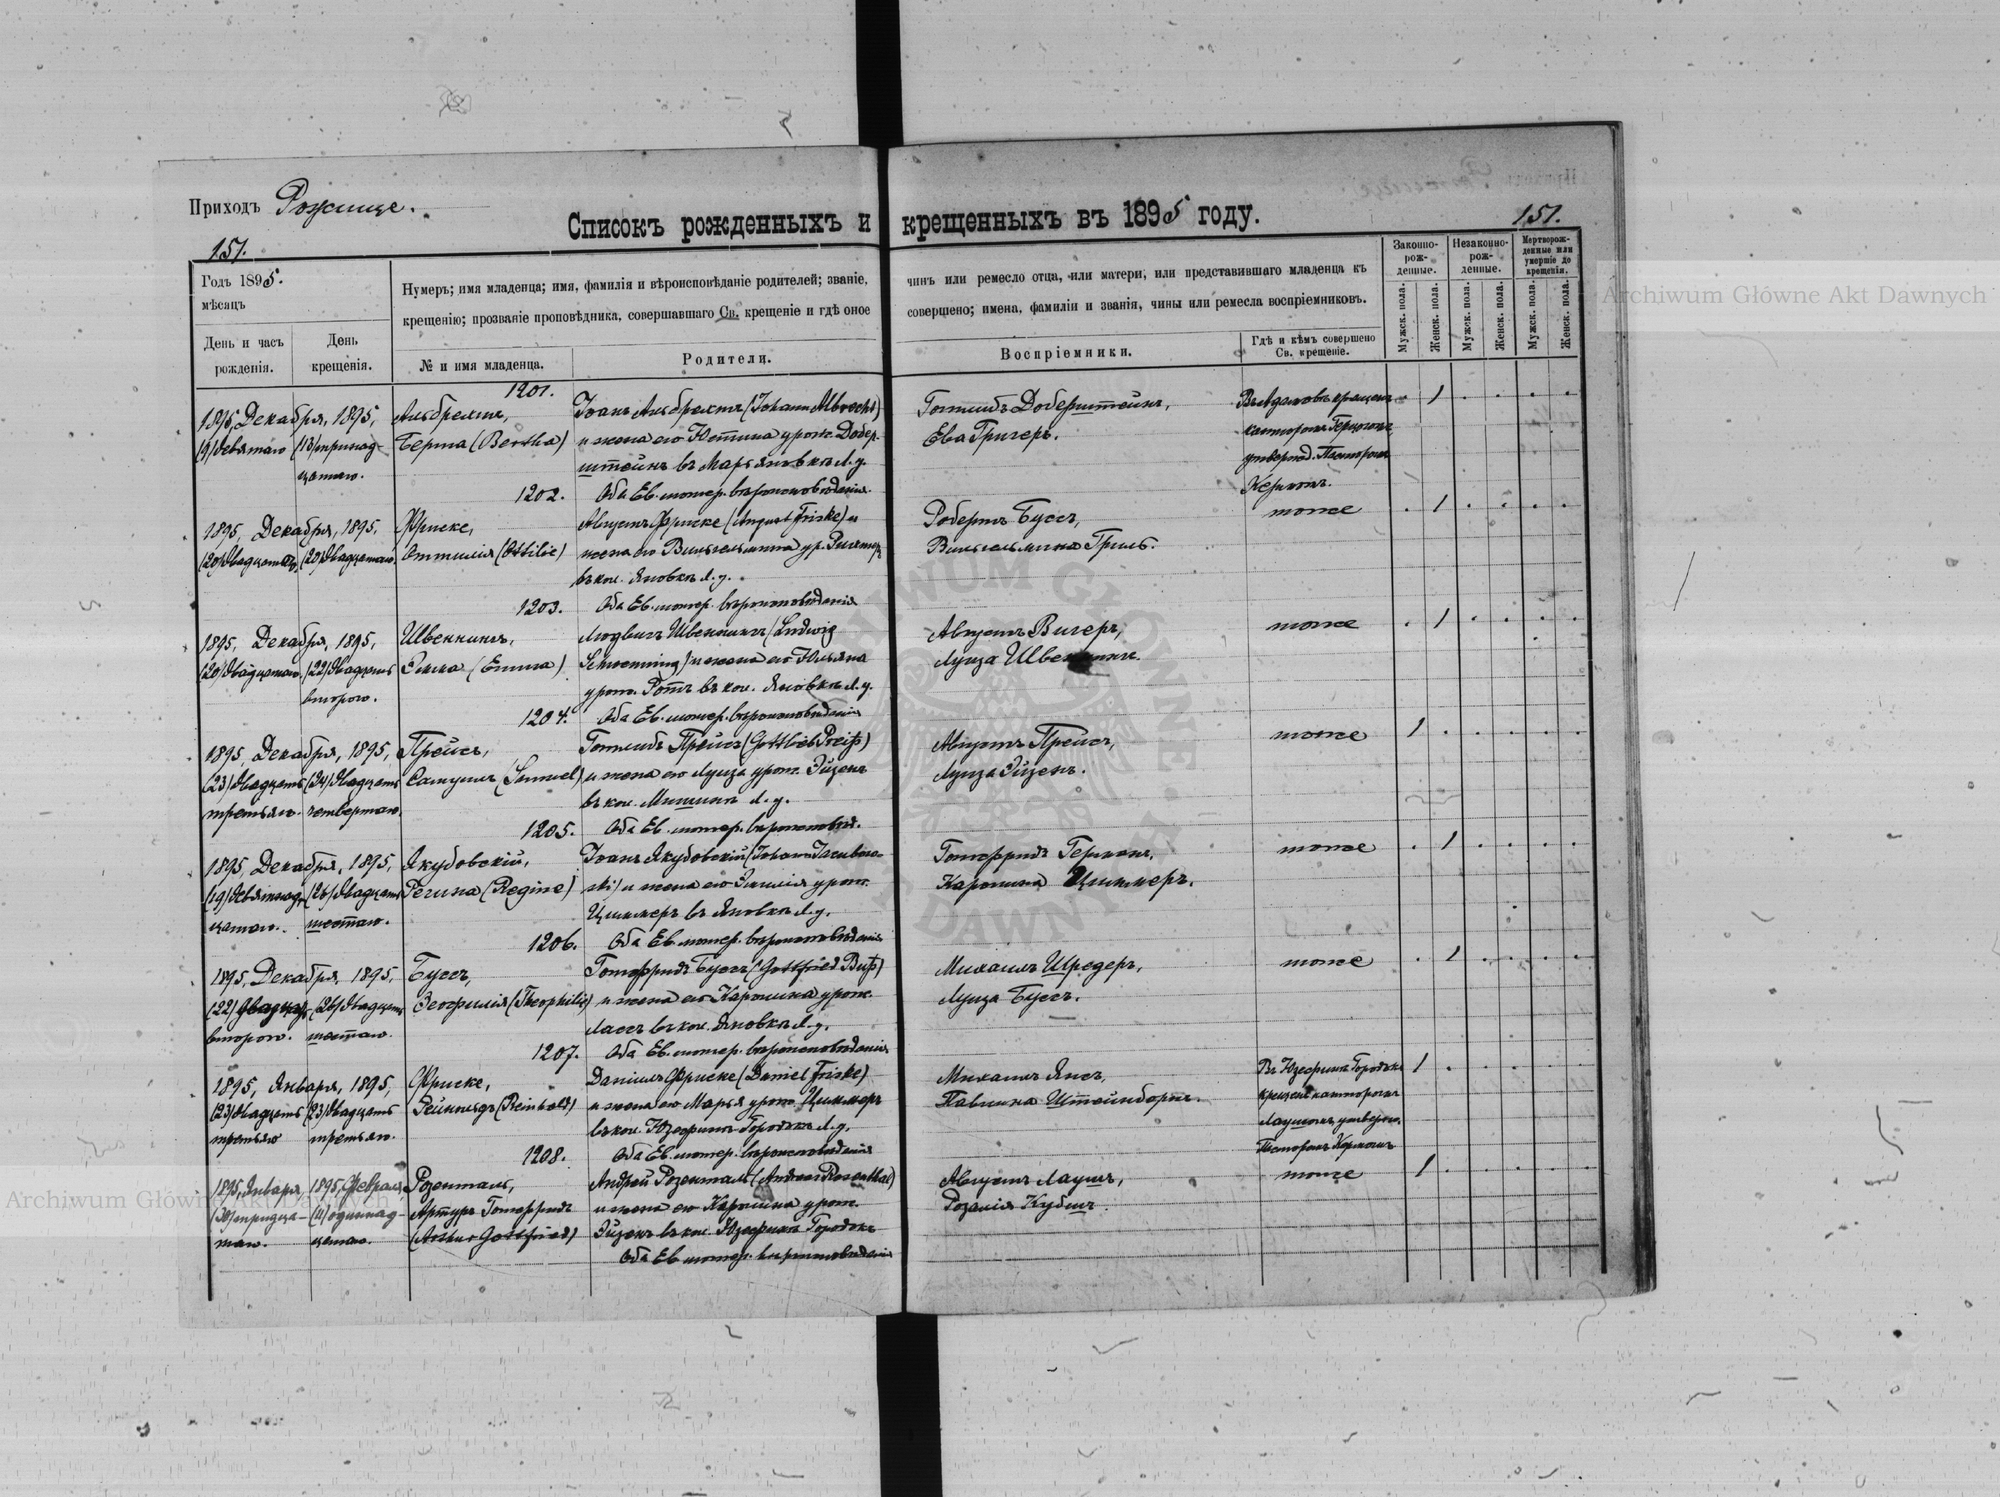 Приходъ Рожище.
Списокъ рожденныхъ и крещенныхъ въ 1895 году.
151.
151.
Годъ 1895.
мѣсяцъ
День и часъ рожденія.
День крещенія.
Нумеръ; имя младенца; имя, фамилія и вѣроисповѣданіе родителей; званіе,
крещенію; прозваніе проповѣдника, совершавшаго Св. крещеніе и гдѣ оное
№ и имя младенца.
Родители.
чинъ или ремесло отца, или матери, или представившаго младенца къ
совершено; имена, фамиліи и званія, чины или ремесла воспріемниковъ.
Воспріемники.
Гдѣ и кѣмъ совершено
Св. крещеніе.
Законно-
рож-
денные.
Незаконно-
рож-
денные.
Мертворож-
денные или
умершіе до
крещенія.
Мужск. пола.
Женск. пола.
Мужск. пола.
Женск. пола.
Мужск. пола.
Женск. пола.
1201.
1895, Декабря, 1895, Альбрехтъ, Іоанъ Альбрехтъ (Johann Albrecht) Готлибъ Доберштейнъ,
(9) девятаго (13) тринад- Берта (Bertha) и жена его Юстина урож. Добер- Ева Григеръ.
цатаго. штейнъ въ Марьяновкѣ Л. у.
1202. Оба Ев. лютер. вѣроисповѣданія.
1895, Декабря, 1895, Фриске, Августъ Фриске (August Friske) и Робертъ Буссъ, тоже 1
(20) двадцатаго (20) двадцатаго Оттилія (Ottilie) жена его Вильгельмина ур. Вильгельмина Гриль.
въ кол. Яновкѣ Л. у.
1203. Оба Ев. лютер. вѣроисповѣданія
1895, Декабря, 1895, Швеннингъ, Людвигъ Швеннингъ (Ludwig Августъ Вигеръ, тоже 1
(20) двадцатаго (22) двадцать Эмма (Emma) Schwenning) и жена его Юльяна Луиза
второго. урож. Ротъ въ кол. Яновкѣ Л. у.
1204. Оба Ев. лютер. вѣроисповѣданія
1895, Декабря, 1895, Прейсъ, Готлибъ Прейсъ (Gottlieb Preiß) Августъ Прейсъ, тоже 1
(23) двадцать (24) двадцать Самуилъ (Samuel) и жена его Луиза урож. Эйзенъ Луиза Эйзенъ.
третьяго. четвертаго. въ кол. Л. у.
1205. Оба Ев. лютер. вѣроисповѣд.
1895, Декабря, 1895, Якубовскій, Іоанъ Якубовскій (Johann Jacubows- Готфридъ Германъ, тоже 1
(19) девятнад- (26) двадцать Регина (Regine) ki) и жена его Эмилія урож. Каролина Циммеръ.
цатаго. шестаго. Циммеръ въ Яновкѣ Л. у.
1206. Оба Ев. лютер. вѣроисповѣданія
1895, Декабря, 1895, Буссъ, Готфридъ Буссъ (Gottfried Buß) Михаилъ Шредеръ, тоже 1
(22) двадцать (26) двадцать Теофилія (Theophilie) и жена его Каролина урож. Луиза Буссъ.
второго. шестаго. въ кол. Яновкѣ Л. у.
1207. Оба Ев. лютер. вѣроисповѣданія
1895, Января, 1895, Фриске, Даніилъ Фриске (Daniel Friske) Михаилъ Янсъ, 1
(23) двадцать (23) двадцать Рейнгольдъ (Reinhold) и жена его Марья урож. Циммеръ Павлина Штейнборнъ.
третьяго третьяго. въ кол. Юзефинъ-Городокъ Л. у.
1208. Оба Ев. лютер. вѣроисповѣданія
1895, Января 1895, Февраля, Розенталь, Андрей Розенталь (Andreas Rosenthal) Августъ Лаушъ, тоже 1
(30) тридца- (11) одиннад- Артуръ Готфридъ и жена его Каролина урож. Розалія Кубшъ.
таго. цатаго. (Arthur Gottfried) Эйзенъ въ кол. Юзефинъ Городокъ
Оба Ев лютер. вѣроисповѣданія
Archiwum Główne Akt Dawnych
Archiwum Główne Akt Dawnych
ARCHIWUM GŁÓWNE AKT DAWNYCH